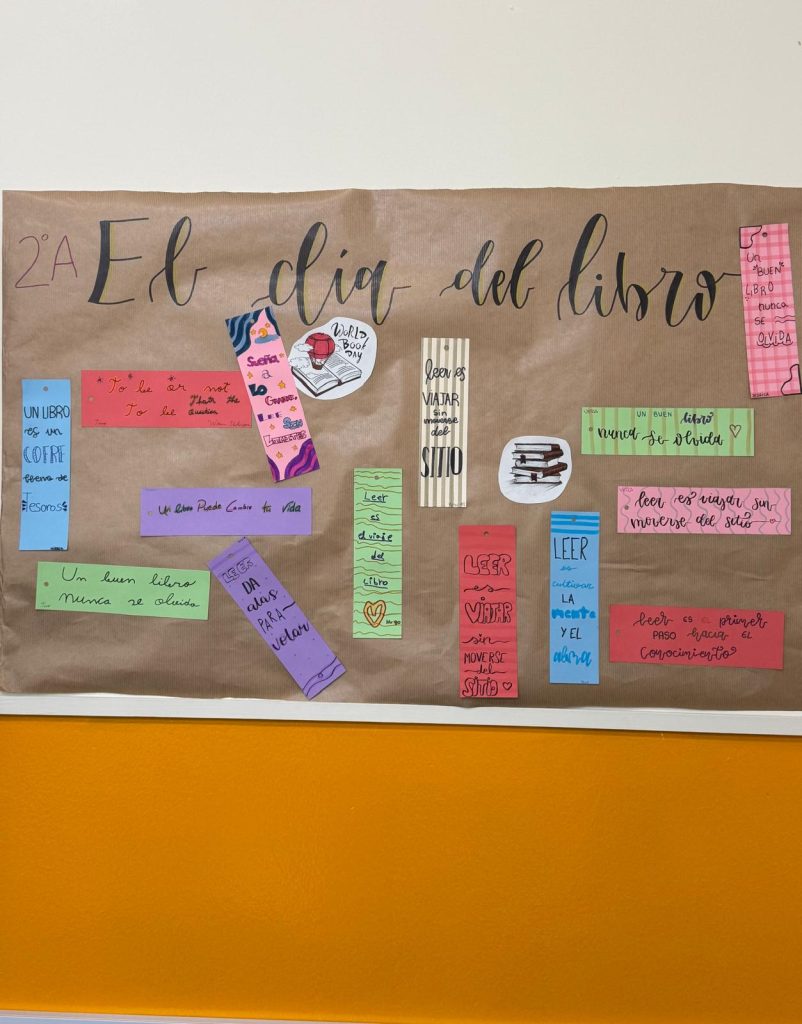 2ºA El día del libro
WORLD
BOOK
DAY
Un
"BUEN"
LIBRO
nunca
SE
OLVIDA
JESSICA
Sueña
a
Lo
GRANDE,
LEE
SIN
To be or not
To be That's the
Question
UN LIBRO
es un
COFRE
lleno de
Tesoros
leer es
VIAJAR
sin
moverse
del
SITIO
UN BUEN libro
nunca se olvida
Un libro Puede Cambiar tu vida
Leer
es
el viaje
del
libro
Hugo
leer es viajar sin
moverse del sitio
Un buen libro
nunca se olvida
LEER
DA
alas
PARA
volar
LEER
es
VIAJAR
sin
MOVERSE
del
SITIO
LEER
es
cultivar
LA
mente
Y EL
alma
leer ES EL primer
PASO hacia EL
Conocimiento